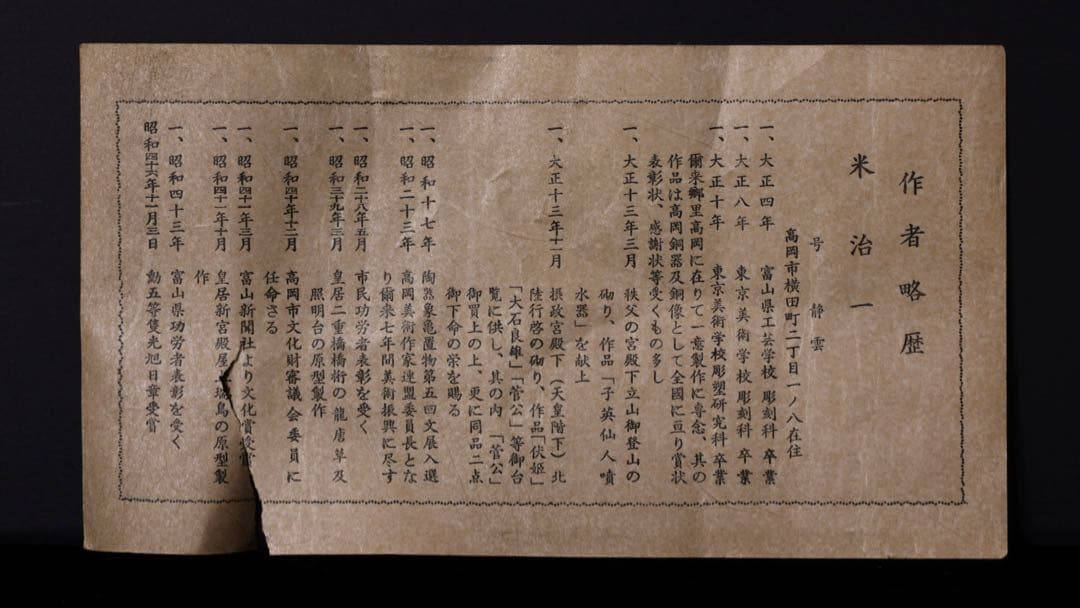 作者略歴
米治一
号 静雲
高岡市横田町二丁目一ノ八在住
一、大正四年 富山県工芸学校 彫刻科 卒業
一、大正八年 東京美術学校 彫刻科 卒業
一、大正十年 東京美術学校彫塑研究科卒業
爾来郷里高岡に在りて一意製作に専念、其の
作品は高岡銅器及銅像として全國に亘り賞状
表彰状、感謝状等受くもの多し
一、大正十三年三月 秩父の宮殿下立山御登山の
砌り、作品「子英仙人噴
水器」を献上
一、大正十三年十一月 摂政宮殿下（天皇階下）北
陸行啓の砌り、作品「伏姫」
「大石良雄」「菅公」等御台
覧に供し、其の内 「菅公」
御買上の上、更に同品二点
御下命の栄を賜る
一、昭和十七年 陶器象亀置物第五回文展入選
一、昭和二十三年 高岡美術作家連盟委員長とな
り爾来七年間美術振興に尽す
一、昭和二十八年五月 市民功労者表彰を受く
一、昭和三十九年三月 皇居二重橋橋術の龍唐草及
照明台の原型製作
一、昭和四十年十二月 高岡市文化財審議会委員に
任命さる
一、昭和四十一年三月 富山新聞社より文化賞受賞
一、昭和四十一年十月 皇居新宮殿屋上瑞鳥の原型製
作
一、昭和四十三年 富山県功労者表彰を受く
昭和四十六年十一月三日 勳五等隻光旭日章受賞